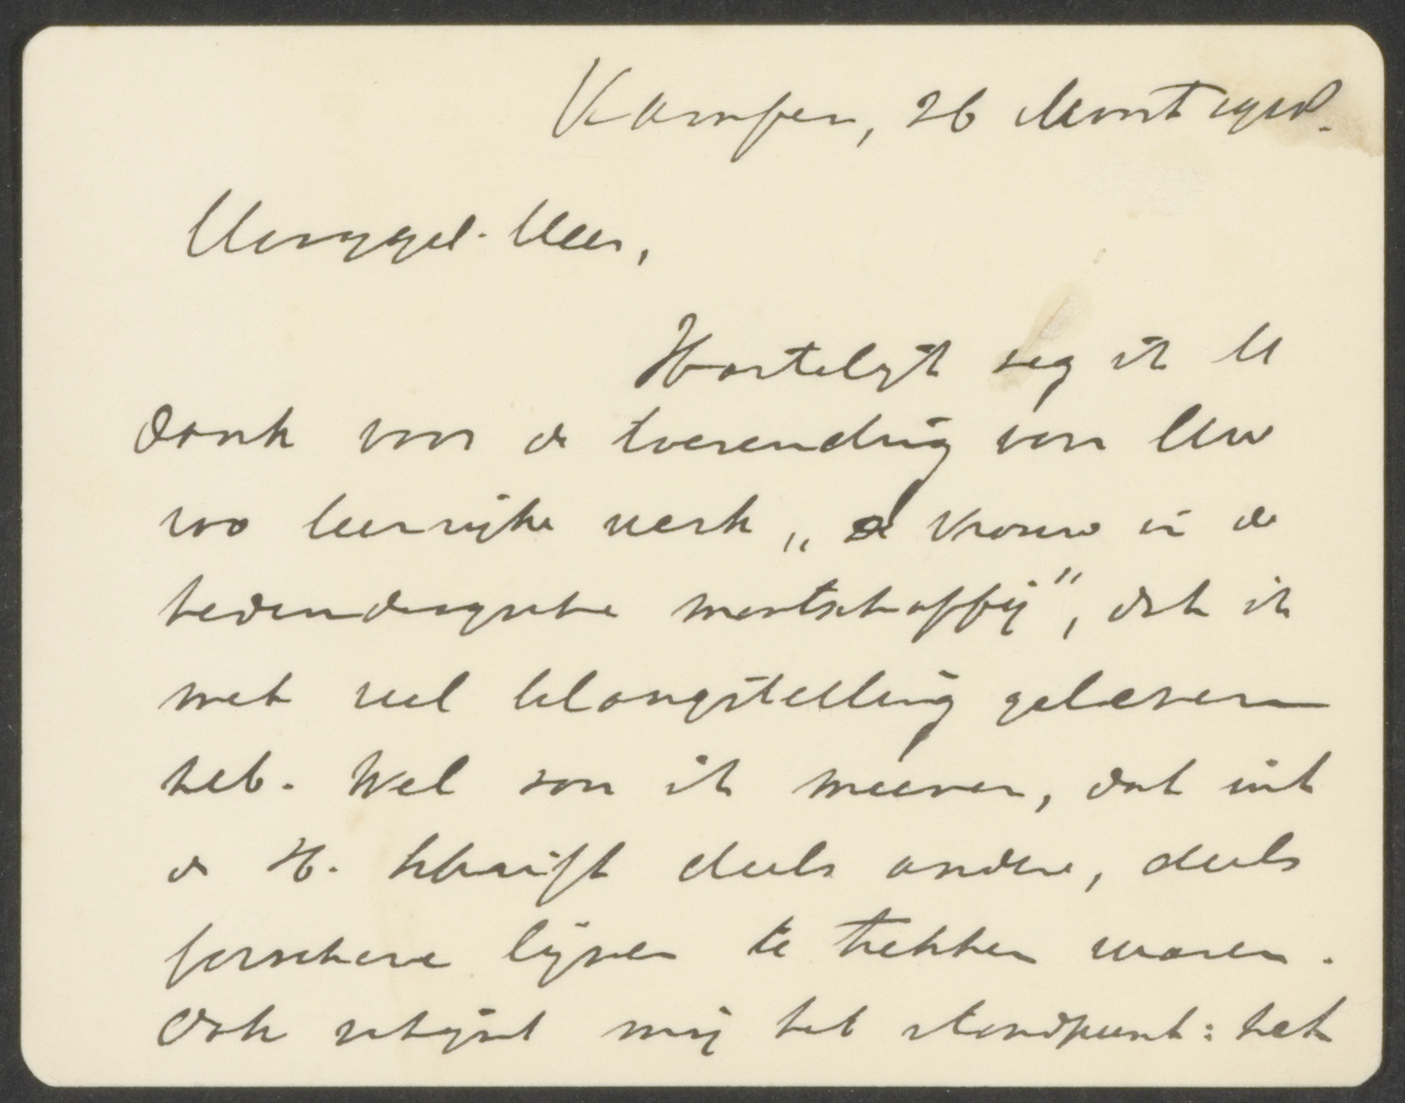 Kampen, 26 Maart 1918.
Hooggel. Heer,
Hartelijk zeg ik U
dank voor de toezending van Uw
zoo leerrijke werk „de vrouw in de
hedendaagsche maatschappij", dat ik
met veel belangstelling gelezen
heb. Wel zou ik meenen, dat uit
de H. Schrift deels andere, deels
forschere lijnen te trekken waren.
Ook schijnt mij het standpunt: het